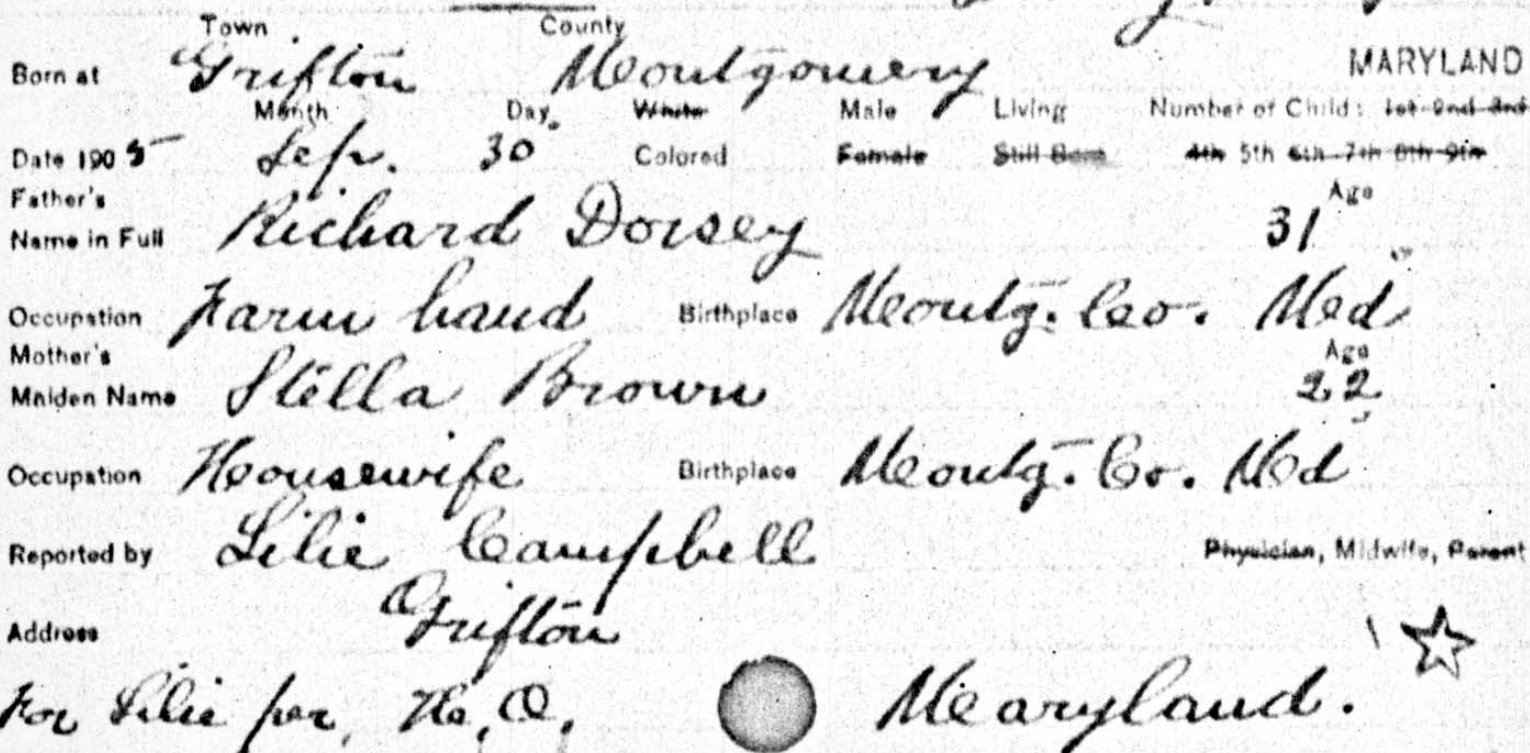 Town County
Born at Grifton Montgomery MARYLAND
Month Day White Male Living Number of Child: 1st 2nd 3rd
Date 1905 Sep. 30 Colored Female Still Born 4th 5th 6th 7th 8th 9th
Father's Age
Name in Full Richard Dorsey 31
Occupation Farm hand Birthplace Montg. Co. Md
Mother's Age
Maiden Name Stella Brown 22
Occupation Housewife Birthplace Montg. Co. Md
Reported by Lilie Campbell Physician, Midwife, Parent
Address Grifton
For Lilie per, H. O. Maryland.